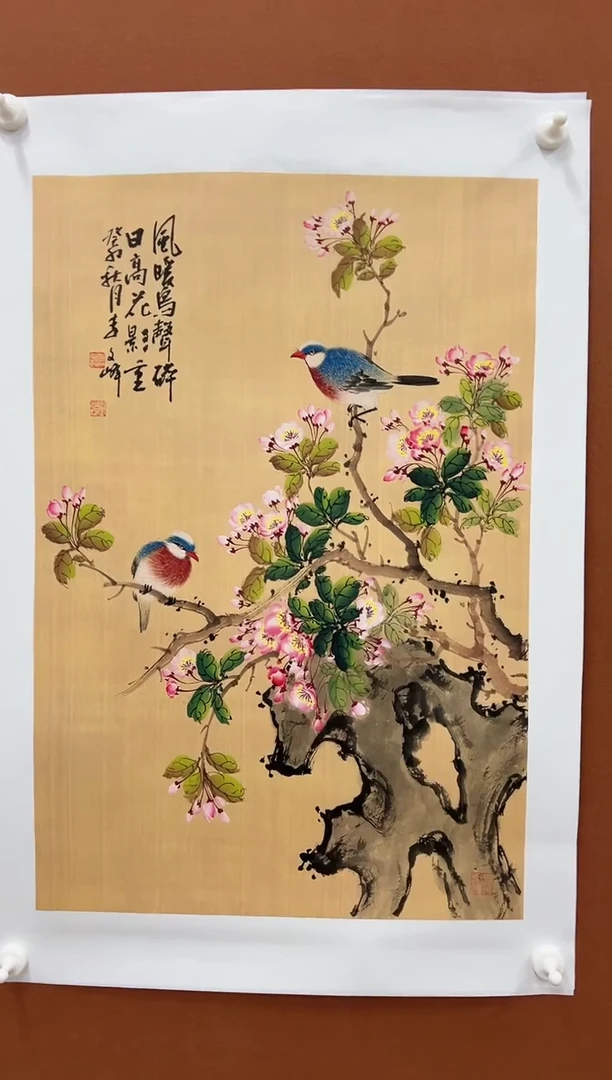 風暖鳥聲碎
日高花影重
癸卯秋月李文峰